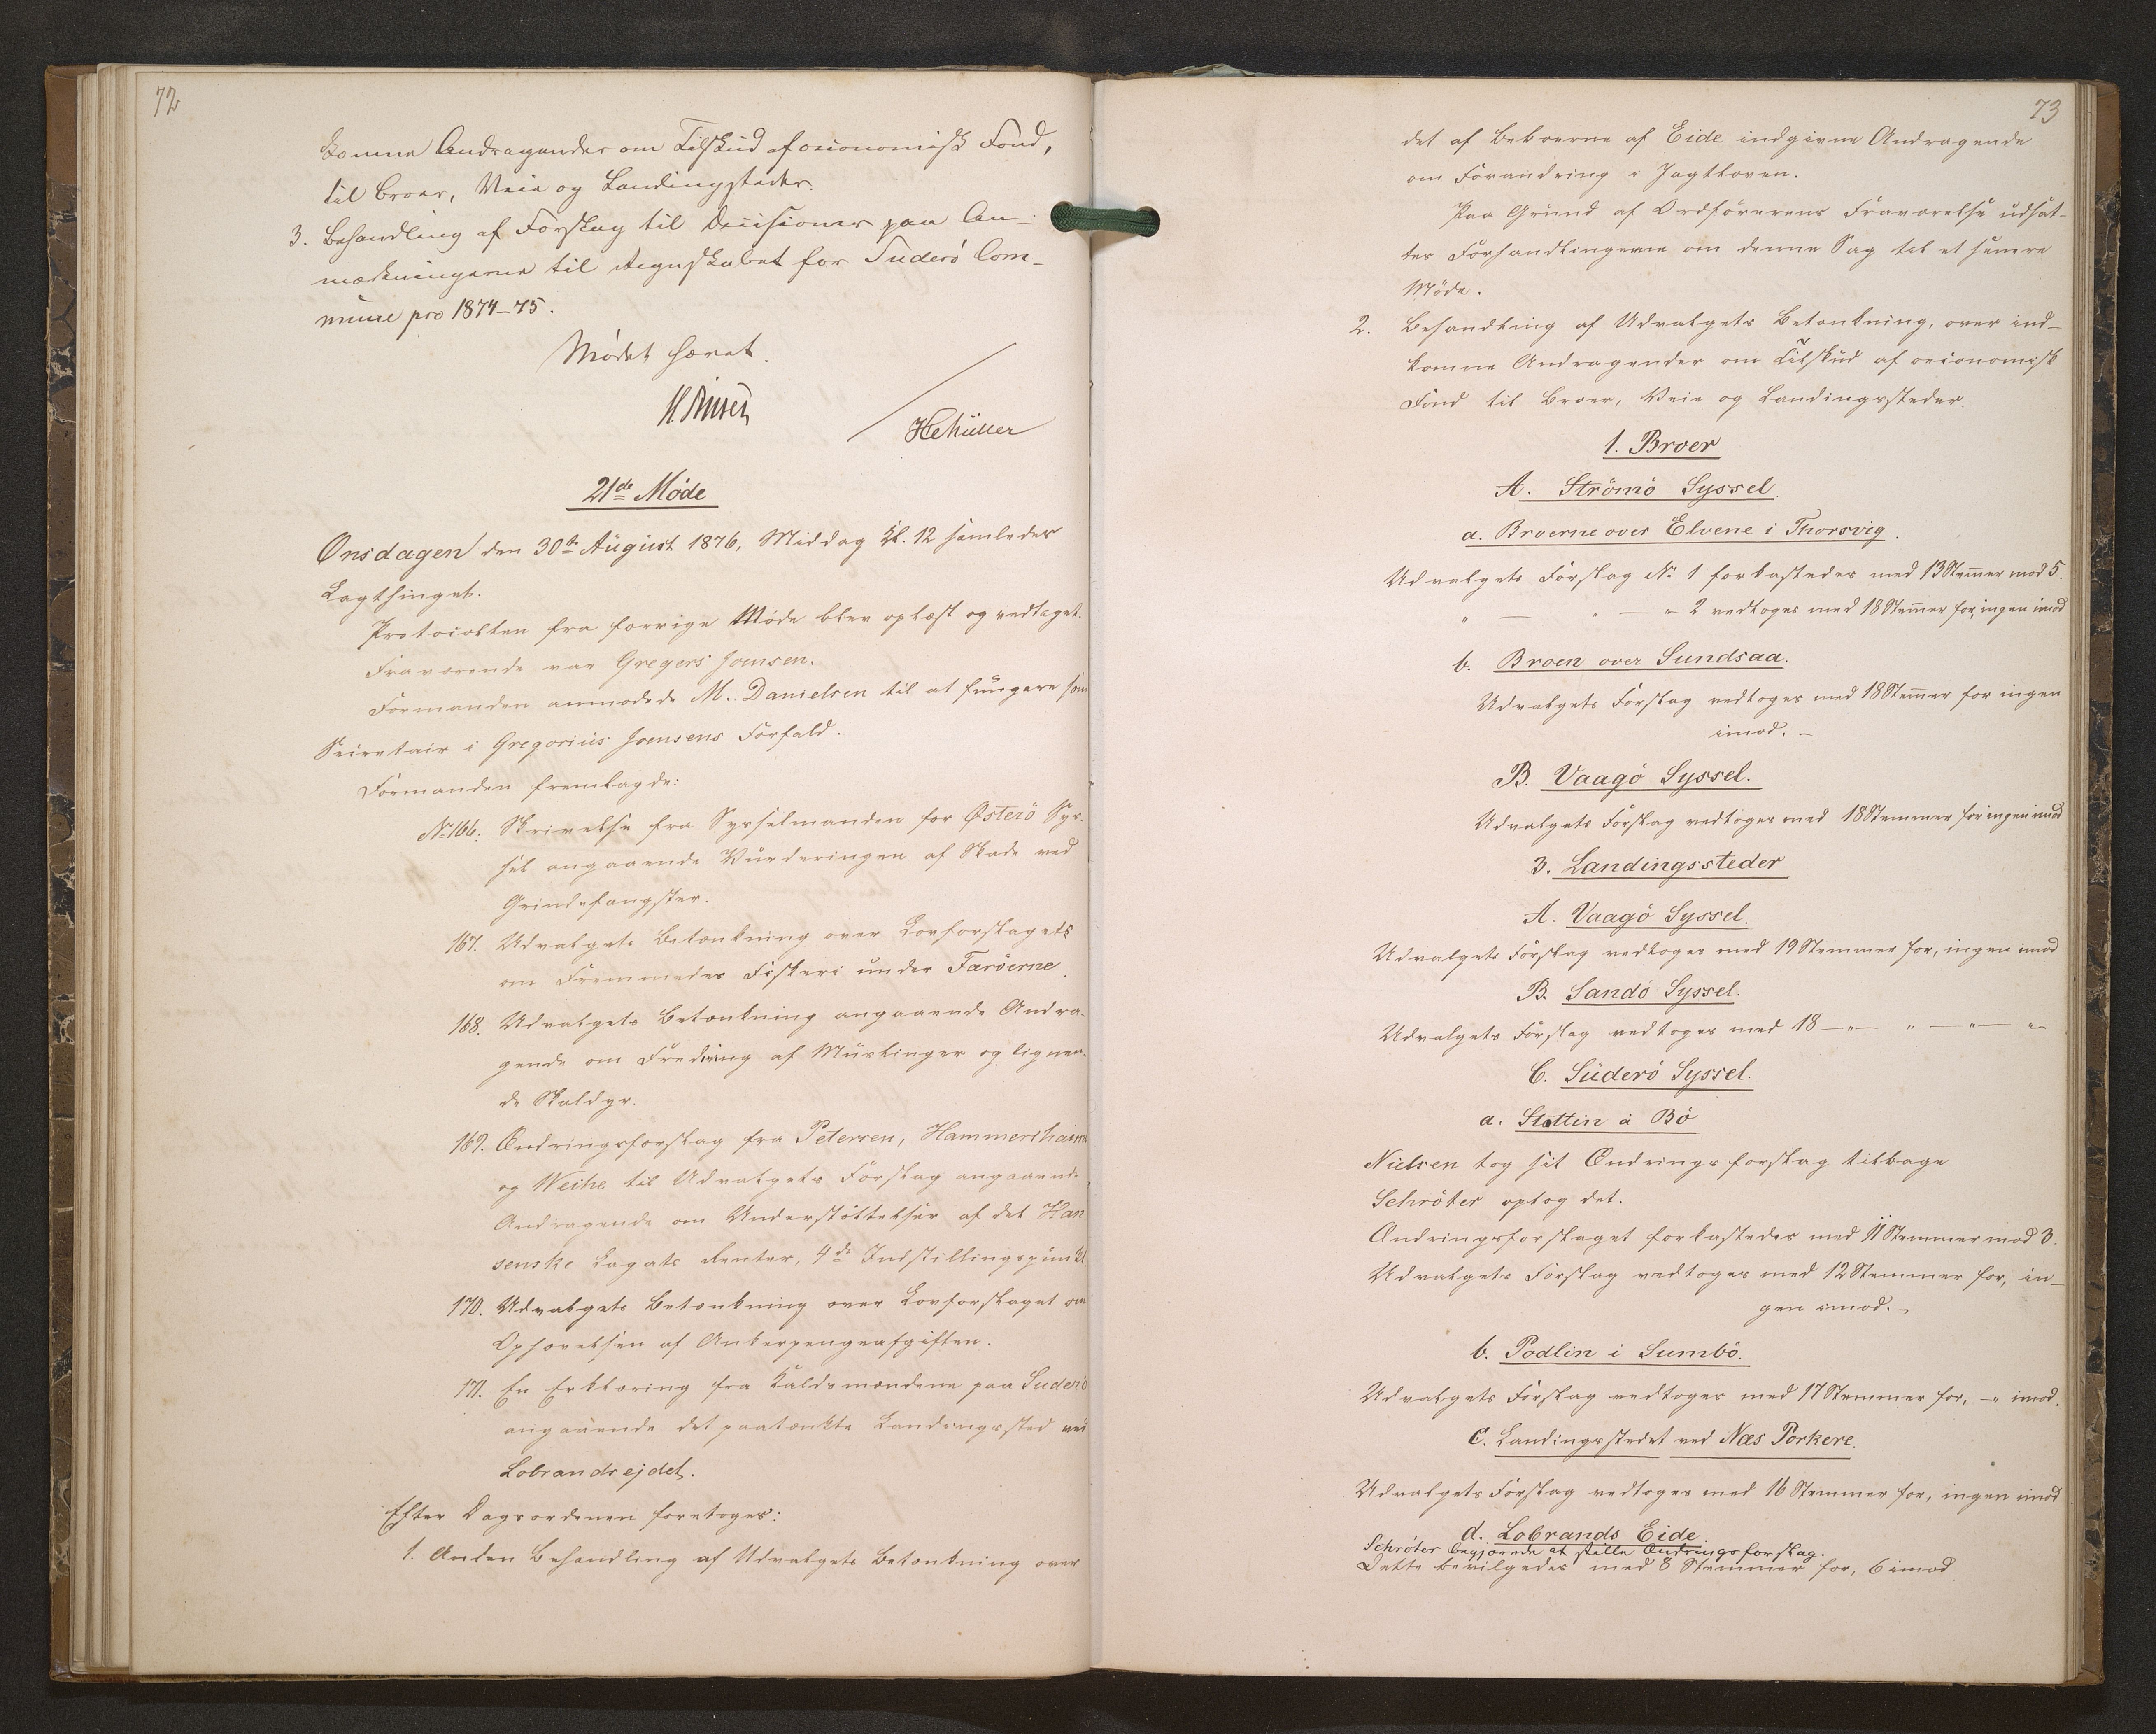 72
komne Andragender om Tilskud af oeconomisk Fond,
til Broer, Veie og Landingssteder.
3. Behandling af Forslag til Decisioner paa An-
mærkningerne til Regnskabet for Suderö Com-
mune pro 1874-75.
Mødet hævet.
H. Finsen
HCMüller
21de Møde
Onsdagen den 30te August 1876, Middag Kl. 12 samledes
Lagthinget.
Protocollen fra forrige Møde blev oplæst og vedtaget.
Fraværende var Gregers Joensen.
Formanden anmodede M. Danielsen til at fungere som
Secretair i Gregorius Joensens Forfald.
Formanden fremlagde:
No 166. Skrivelse fra Sysselmanden for Østerö Sys-
sel angaaende Vurderingen af Skade ved
Grindefangster.
167. Udvalgets Betænkning over Lovforslagets
om Fremmedes Fiskeri under Færöerne.
168. Udvalgets Betænkning angaaende Andra-
gende om Fredning af Muslinger og lignen-
de Skaldyr.
169. Ændringsforslag fra Petersen, Hammershaimb
og Weihe til Udvalgets Forslag angaaende
Andragende om Understöttelser af det Han
senske Legats Renter, 4de Indstillingspunkt.
170. Udvalgets Betænkning over Lovforslaget om
Ophævelsen af Ankerpengeafgiften.
171. En Erklæring fra Kaldsmændene paa Suderö
angaaende det paatænkte Landingssted ved
Lobrandsejdet.
Efter Dagsordenen foretoges:
1. Anden Behandling af Udvalgets Betænkning over
73
det af Beboerne af Eide indgivne Andragende
om Forandring i Jagtloven.
Paa Grund af Ordförerens Fraværelse udsat-
tes Forhandlingerne om denne Sag til et senere
Möde.
2. Behandling af Udvalgets Betænkning, over ind-
komne Andragender om Tilskud af oeconomisk
Fond til Broer, Veie og Landingssteder.
1. Broer
A. Strömö Syssel.
a. Broerne over Elvene i Thorsvig.
Udvalgets Forslag No 1 forkastedes med 13 Stemmer mod 5.
" — " — " 2 vedtoges med 18 Stemmer for, ingen imod
b. Broen over Sundsaa.
Udvalgets Forslag vedtoges med 18 Stemmer for ingen
imod. -
B. Vaagö Syssel.
Udvalgets Forslag vedtoges med 18 Stemmer for ingen imod
3. Landingssteder
A. Vaagö Syssel.
Udvalgets Forslag vedtoges med 19 Stemmer for, ingen imod
B. Sandö Syssel.
Udvalgets Forslag vedtoges med 18 — " — " — " — "
C. Süderö Syssel.
a. Stattin á Bö
Nielsen tog sit Ændringsforslag tilbage
Schröter optog det.
Ændringsforslaget forkastedes med 11 Stemmer mod 3.
Udvalgets Forslag vedtoges med 12 Stemmer for, in-
gen imod. -
b. Podlin i Sumbö.
Udvalgets Forslag vedtoges med 17 Stemmer for, - " imod.
C. Landingsstedet ved Næs Porkere.
Udvalgets Forslag vedtoges med 16 Stemmer for, ingen imod
d. Lobrands Eide.
Schröter begjærede at stille Ændringsforslag.
Dette bevilgedes med 8 Stemmer for, 6 imod